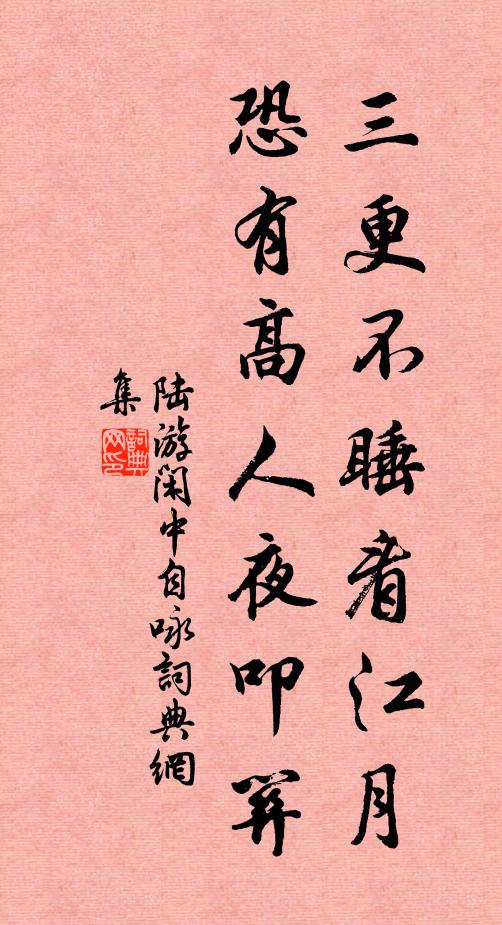 三更不睡看江月
恐有高人夜叩關
陆游闲中自咏詞典網
集
詞典网印